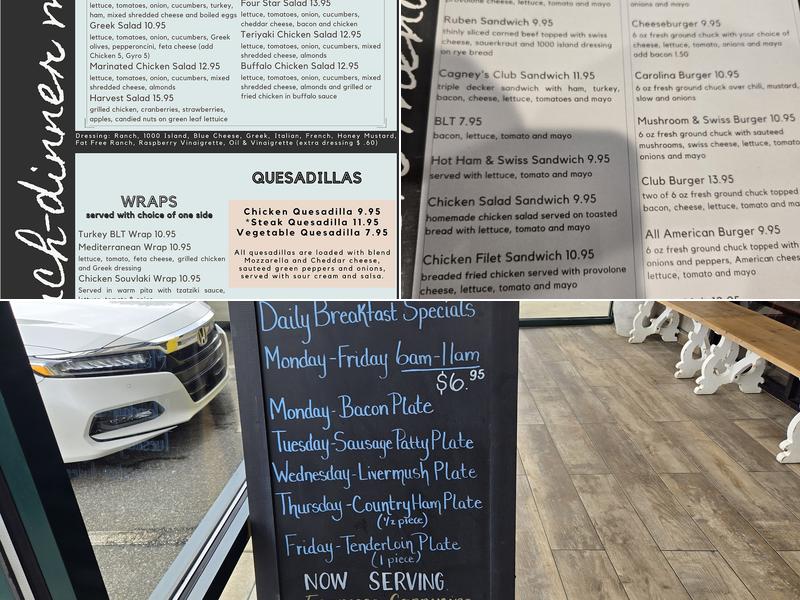 lettuce, tomatoes, onion, cucumbers, turkey,
ham, mixed shredded cheese and boiled eggs
Greek Salad 10.95
lettuce, tomatoes, onion, cucumbers, Greek
olives, pepperoncini, feta cheese (add
Chicken 5, Gyro 5)
Marinated Chicken Salad 12.95
lettuce, tomatoes, onion, cucumbers, mixed
shredded cheese, almonds
Harvest Salad 15.95
grilled chicken, cranberries, strawberries,
apples, candied nuts on green leaf lettuce
Four Star Salad 13.95
lettuce, tomatoes, onion, cucumbers,
cheddar cheese, bacon and chicken
Teriyaki Chicken Salad 12.95
lettuce, tomatoes, onion, cucumbers, mixed
shredded cheese, almonds
Buffalo Chicken Salad 12.95
lettuce, tomatoes, onion, cucumbers, mixed
shredded cheese, almonds and grilled or
fried chicken in buffalo sauce
Dressing: Ranch, 1000 Island, Blue Cheese, Greek, Italian, French, Honey Mustard,
Fat Free Ranch, Raspberry Vinaigrette, Oil & Vinaigrette (extra dressing $ .60)
WRAPS
served with choice of one side
Turkey BLT Wrap 10.95
Mediterranean Wrap 10.95
lettuce, tomato, feta cheese, grilled chicken
and Greek dressing
Chicken Souvlaki Wrap 10.95
Served in warm pita with tzatziki sauce,
QUESADILLAS
Chicken Quesadilla 9.95
*Steak Quesadilla 11.95
Vegetable Quesadilla 7.95
All quesadillas are loaded with blend
Mozzarella and Cheddar cheese,
sauteed green peppers and onions,
served with sour cream and salsa.
Ruben Sandwich 9.95
thinly sliced corned beef topped with swiss
cheese, sauerkraut and 1000 island dressing
on rye bread
Cagney's Club Sandwich 11.95
triple decker sandwich with ham, turkey,
bacon, cheese, lettuce, tomatoes and mayo
BLT 7.95
bacon, lettuce, tomato and mayo
Hot Ham & Swiss Sandwich 9.95
served with lettuce, tomato and mayo
Chicken Salad Sandwich 9.95
homemade chicken salad served on toasted
bread with lettuce, tomato and mayo
Chicken Filet Sandwich 10.95
breaded fried chicken served with provolone
cheese, lettuce, tomatoes and mayo
onions and mayo
Cheeseburger 9.95
6 oz fresh ground chuck with your choice of
cheese, lettuce, tomato, onions and mayo
add bacon 1.50
Carolina Burger 10.95
6 oz fresh ground chuck over chili, mustard,
slaw and onions
Mushroom & Swiss Burger 10.95
6 oz fresh ground chuck with sauteed
mushrooms, swiss cheese, lettuce, tomato,
onions and mayo
Club Burger 13.95
two of 6 oz fresh ground chuck topped
bacon, cheese, lettuce, tomatoes and
All American Burger 9.95
6 oz fresh ground chuck topped with
onions and peppers, American chees
lettuce, tomato and mayo
Daily Breakfast Specials
Monday-Friday 6am-11am
$6.95
Monday-Bacon Plate
Tuesday-Sausage Patty Plate
Wednesday-Livermush Plate
Thursday-Country Ham Plate
(1/2 piece)
Friday-Tenderloin Plate
(1 piece)
NOW SERVING